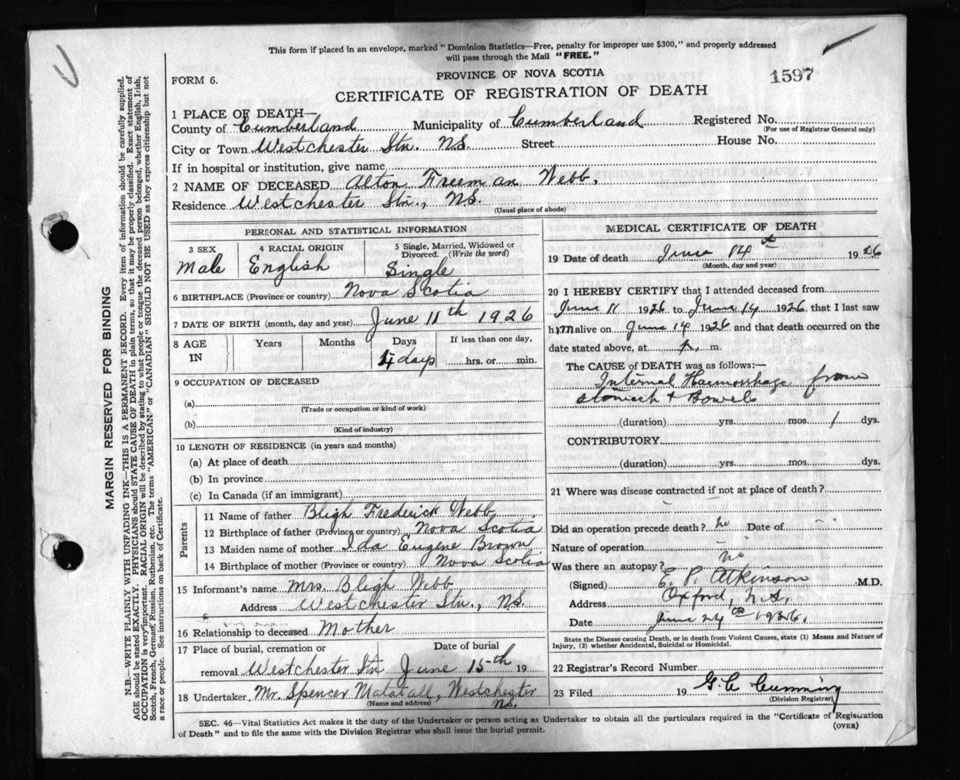 This form if placed in an envelope, marked "Dominion Statistics—Free, penalty for improper use $300," and properly addressed
will pass through the Mail "FREE."
PROVINCE OF NOVA SCOTIA
1597
FORM 6.
CERTIFICATE OF REGISTRATION OF DEATH
1 PLACE OF DEATH—
County of Cumberland Municipality of Cumberland Registered No.
(For use of Registrar General only)
City or Town Westchester Stn. NS Street House No.
If in hospital or institution, give name
2 NAME OF DECEASED Alton Freeman Webb,
Residence Westchester Stn., N.S.
(Usual place of abode)
PERSONAL AND STATISTICAL INFORMATION
3 SEX 4 RACIAL ORIGIN 5 Single, Married, Widowed or Divorced. (Write the word)
Male English Single
6 BIRTHPLACE (Province or country) Nova Scotia
7 DATE OF BIRTH (month, day and year) June 11th 1926
8 AGE IN Years Months Days If less than one day,
4 days hrs. or min.
9 OCCUPATION OF DECEASED
(a)
(Trade or occupation or kind of work)
(b)
(Kind of industry)
10 LENGTH OF RESIDENCE (in years and months)
(a) At place of death
(b) In province
(c) In Canada (if an immigrant)
Parents
11 Name of father Bligh Frederick Webb
12 Birthplace of father (Province or country) Nova Scotia
13 Maiden name of mother Ida Eugene Brown
14 Birthplace of mother (Province or country) Nova Scotia
15 Informant's name Mrs. Bligh Webb
Address Westchester Stn., N.S.
16 Relationship to deceased Mother
17 Place of burial, cremation or Date of burial
removal Westchester Stn June 15-th 19
18 Undertaker Mr. Spencer Westchester
(Name and address) N.S.
MEDICAL CERTIFICATE OF DEATH
19 Date of death June 14th 1926
(Month, day and year)
20 I HEREBY CERTIFY that I attended deceased from
June 11 1926 to June 14 1926, that I last saw
him alive on June 14 1926 and that death occurred on the
date stated above, at m.
The CAUSE OF DEATH was as follows:—
Internal Haemorrhage from
stomach & Bowels
(duration) yrs. mos. 1 dys.
CONTRIBUTORY
(duration) yrs. mos. dys.
21 Where was disease contracted if not at place of death?
Did an operation precede death? no Date of
Nature of operation
Was there an autopsy? no
(Signed) E. P. Atkinson M.D.
Address Oxford, N.S.
Date June 24th 1926.
State the Disease causing Death, or in death from Violent Causes, state (1) Means and Nature of
Injury, (2) whether Accidental, Suicidal or Homicidal.
22 Registrar's Record Number
23 Filed 19 G. C. Cumming
(Division Registrar)
SEC. 46—Vital Statistics Act makes it the duty of the Undertaker or person acting as Undertaker to obtain all the particulars required in the "Certificate of Registration
of Death" and to file the same with the Division Registrar who shall issue the burial permit.
(OVER)
MARGIN RESERVED FOR BINDING
N.B.—WRITE PLAINLY WITH UNFADING INK—THIS IS A PERMANENT RECORD. Every item of information should be carefully supplied.
AGE should be stated EXACTLY. PHYSICIANS should STATE CAUSE OF DEATH in plain terms, so that it may be properly classified. Exact statement of
OCCUPATION is very important. RACIAL ORIGIN will be described by stating to what people or tongue the deceased person belonged, whether English, Irish,
Scotch, French, German, Russian, Ruthenian, etc. The terms "AMERICAN" or "CANADIAN" SHOULD NOT BE USED as they express citizenship but not
a race or people. See instructions on back of Certificate.